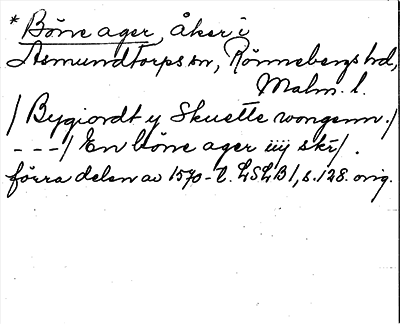 * Böne ager, åker i
Asmundtorps sn, Rönnebergs hd,
Malm. l.
/ Bygiordt y Skuette wongenn. /
- - - / En böne ager iiij skr /.
förra delen av 1570-t. LSLB 1, s. 128. orig.